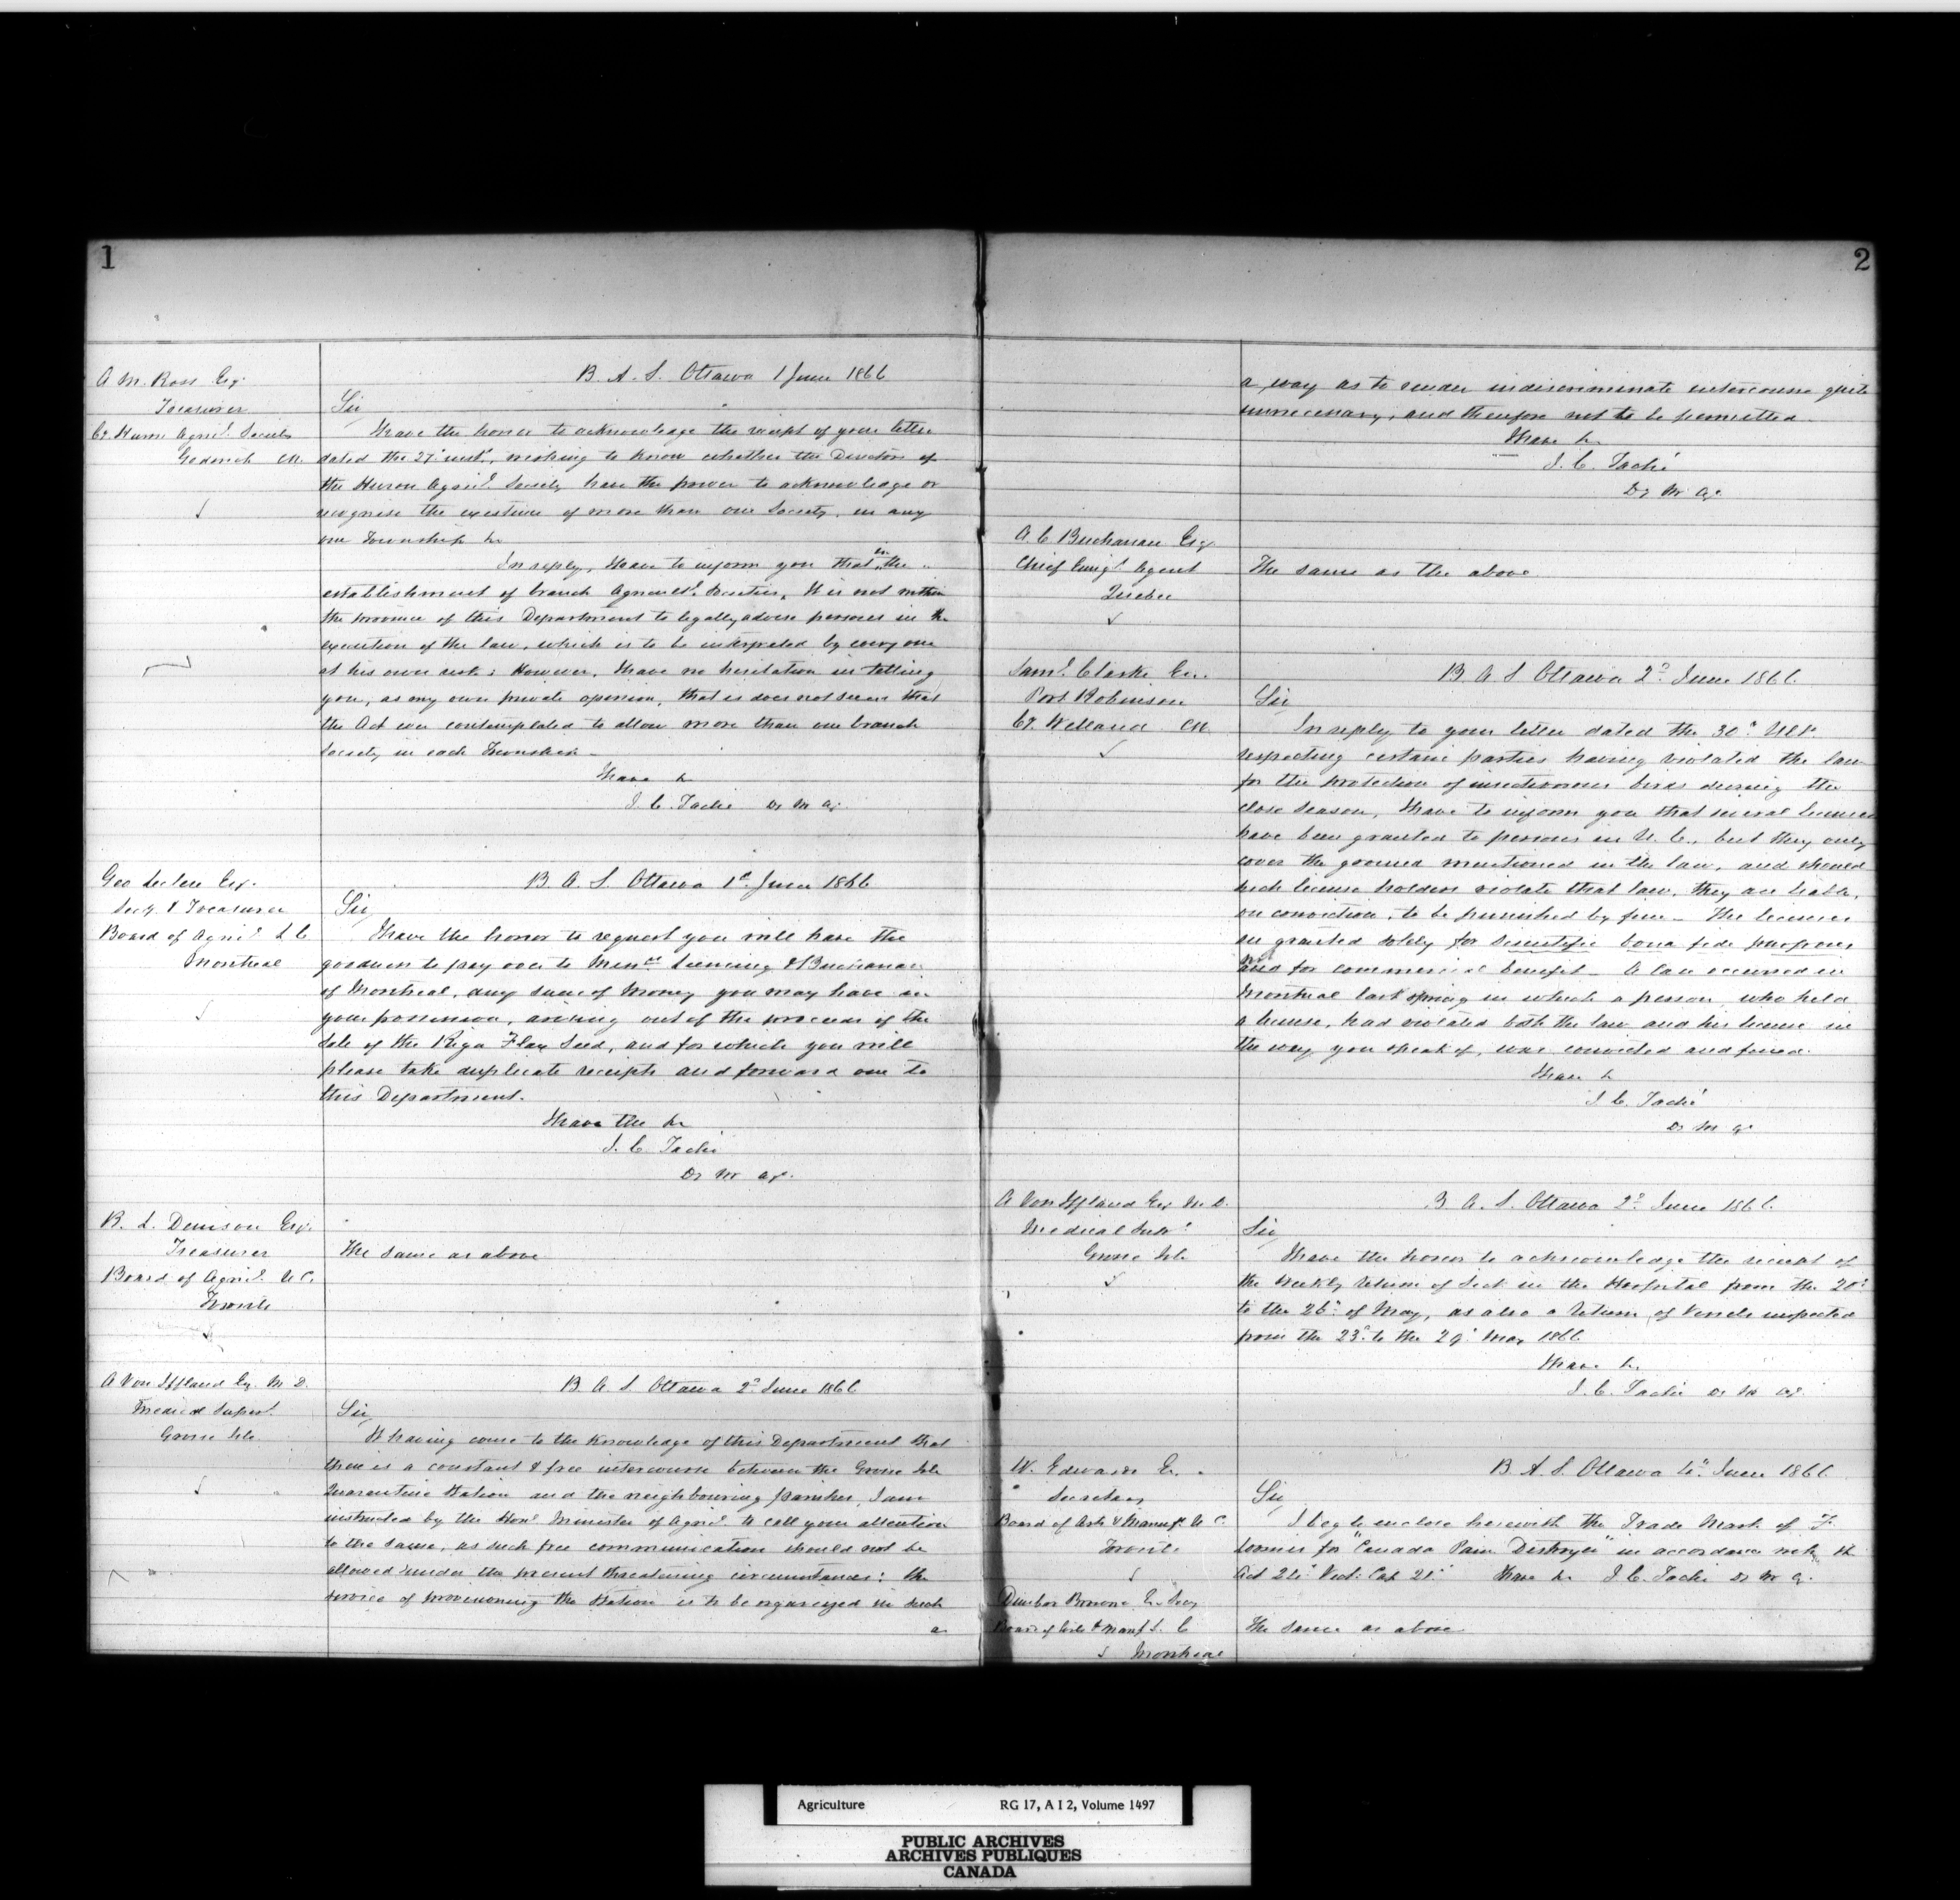 1
A. M. Ross Esq.
Treasurer
Co. Huron Agricl. Society
Goderich CW.
B. A. S. Ottawa 1 June 1866
Sir
I have the honor to acknowledge the receipt of your letter
dated the 27th inst., wishing to know whether the Directors of
the Huron Agricl. Society have the power to acknowledge or
recognise the existence of more than one Society, in any
one Township &c
In reply, I have to inform you that in the
establishment of branch Agricultl. Societies, It is not within
the province of this Department to legally advise persons in the
execution of the law, which is to be interpreted by every one
at his own risk; However, I have no hesitation in telling
you, as my own private opinion, that is does not seem that
the Act ever contemplated to allow more than one branch
Society in each Township -
I have &c
J. C. Taché Dy M Ag.
Geo Leclere Esq.
Secy. & Treasurer
Board of Agricl. L C
Montreal
B. A. S. Ottawa 1st. June 1866
Sir
I have the honor to request you will have the
goodness to pay over to Messrs. Leeming & Buchanan
of Montreal, any sum of Money you may have in
your possession, arising out of the proceeds of the
Sale of the Riga Flax Seed, and for which you will
please take duplicate receipts and forward one to
this Department.
I have the &c
J. C. Taché
Dy M Ag.
R. L. Denison Esq.
Treasurer
Board of Agricl. U C.
Toronto
The same as above
A Von Iffland Esq. M. D.
Medical Supert.
Grosse Isle
B A S. Ottawa 2d June 1866
Sir
It having come to the knowledge of this Department that
there is a constant & free intercourse between the Grosse Isle
Quarantine Station and the neighbouring parishes, I am
instructed by the Honl. Minister of Agricl. to call your attention
to the same, as such free communication should not be
allowed under the present threatening circumstances: the
service of provisioning the Station is to be organized in such
a
2
a way as to render indiscriminate intercourse quite
unnecessary, and therefore not to be permitted.
I have &c
J. C. Taché
Dy M Ag.
A. C Buchanan Esq.
Chief Emigt. Agent
Quebec
The same as the above
Saml. Clarke Esq.
Port Robinson
Co. Welland CW
B. A S Ottawa 2d June 1866.
Sir
In reply to your letter dated the 30th Ult.
respecting certain parties having violated the law
for the protection of insectivorous birds during the
close season, I have to inform you that several licenses
have been granted to persons in U. C., but they only
cover the ground mentioned in the law, and should
such license holders violate that law, they are liable,
on conviction, to be punished by fine - The licenses
are granted solely for scientific bona fide purposes
and for commercial benefit - A case occurred in
Montreal last spring in which a person, who held
a license, had violated both the law and his license in
the way you speak of, was convicted and fined.
I have &c
J. C. Taché
Dy M Ag
A Von Iffland Esq M. D.
Medical Supt.
Grosse Isle
B A. S. Ottawa 2d June 1866.
Sir
I have the honor to acknowledge the receipt of
the Weekly Return of Sick in the Hospital from the 20th
to the 26th of May, as also a Return of Vessels inspected
from the 23d to the 29th May 1866
I have &c.
J. C. Taché Dy M Ag.
W. Edwards Esq.
Secretary
Board of Arts & Manufs. U C.
Toronto
B. A. S. Ottawa 4th June 1866
Sir
I beg to enclose herewith the Trade Mark of F.
for "Canada Pain Destroyer" in accordance with the
Act 24th Vict: Cap 21. I have &c J. C. Taché Dy M Ag.
Dunbar Browne Esq Secy
Board of Arts & Manufs L. C
Montreal
The same as above
Agriculture RG 17, A I 2, Volume 1497
PUBLIC ARCHIVES
ARCHIVES PUBLIQUES
CANADA